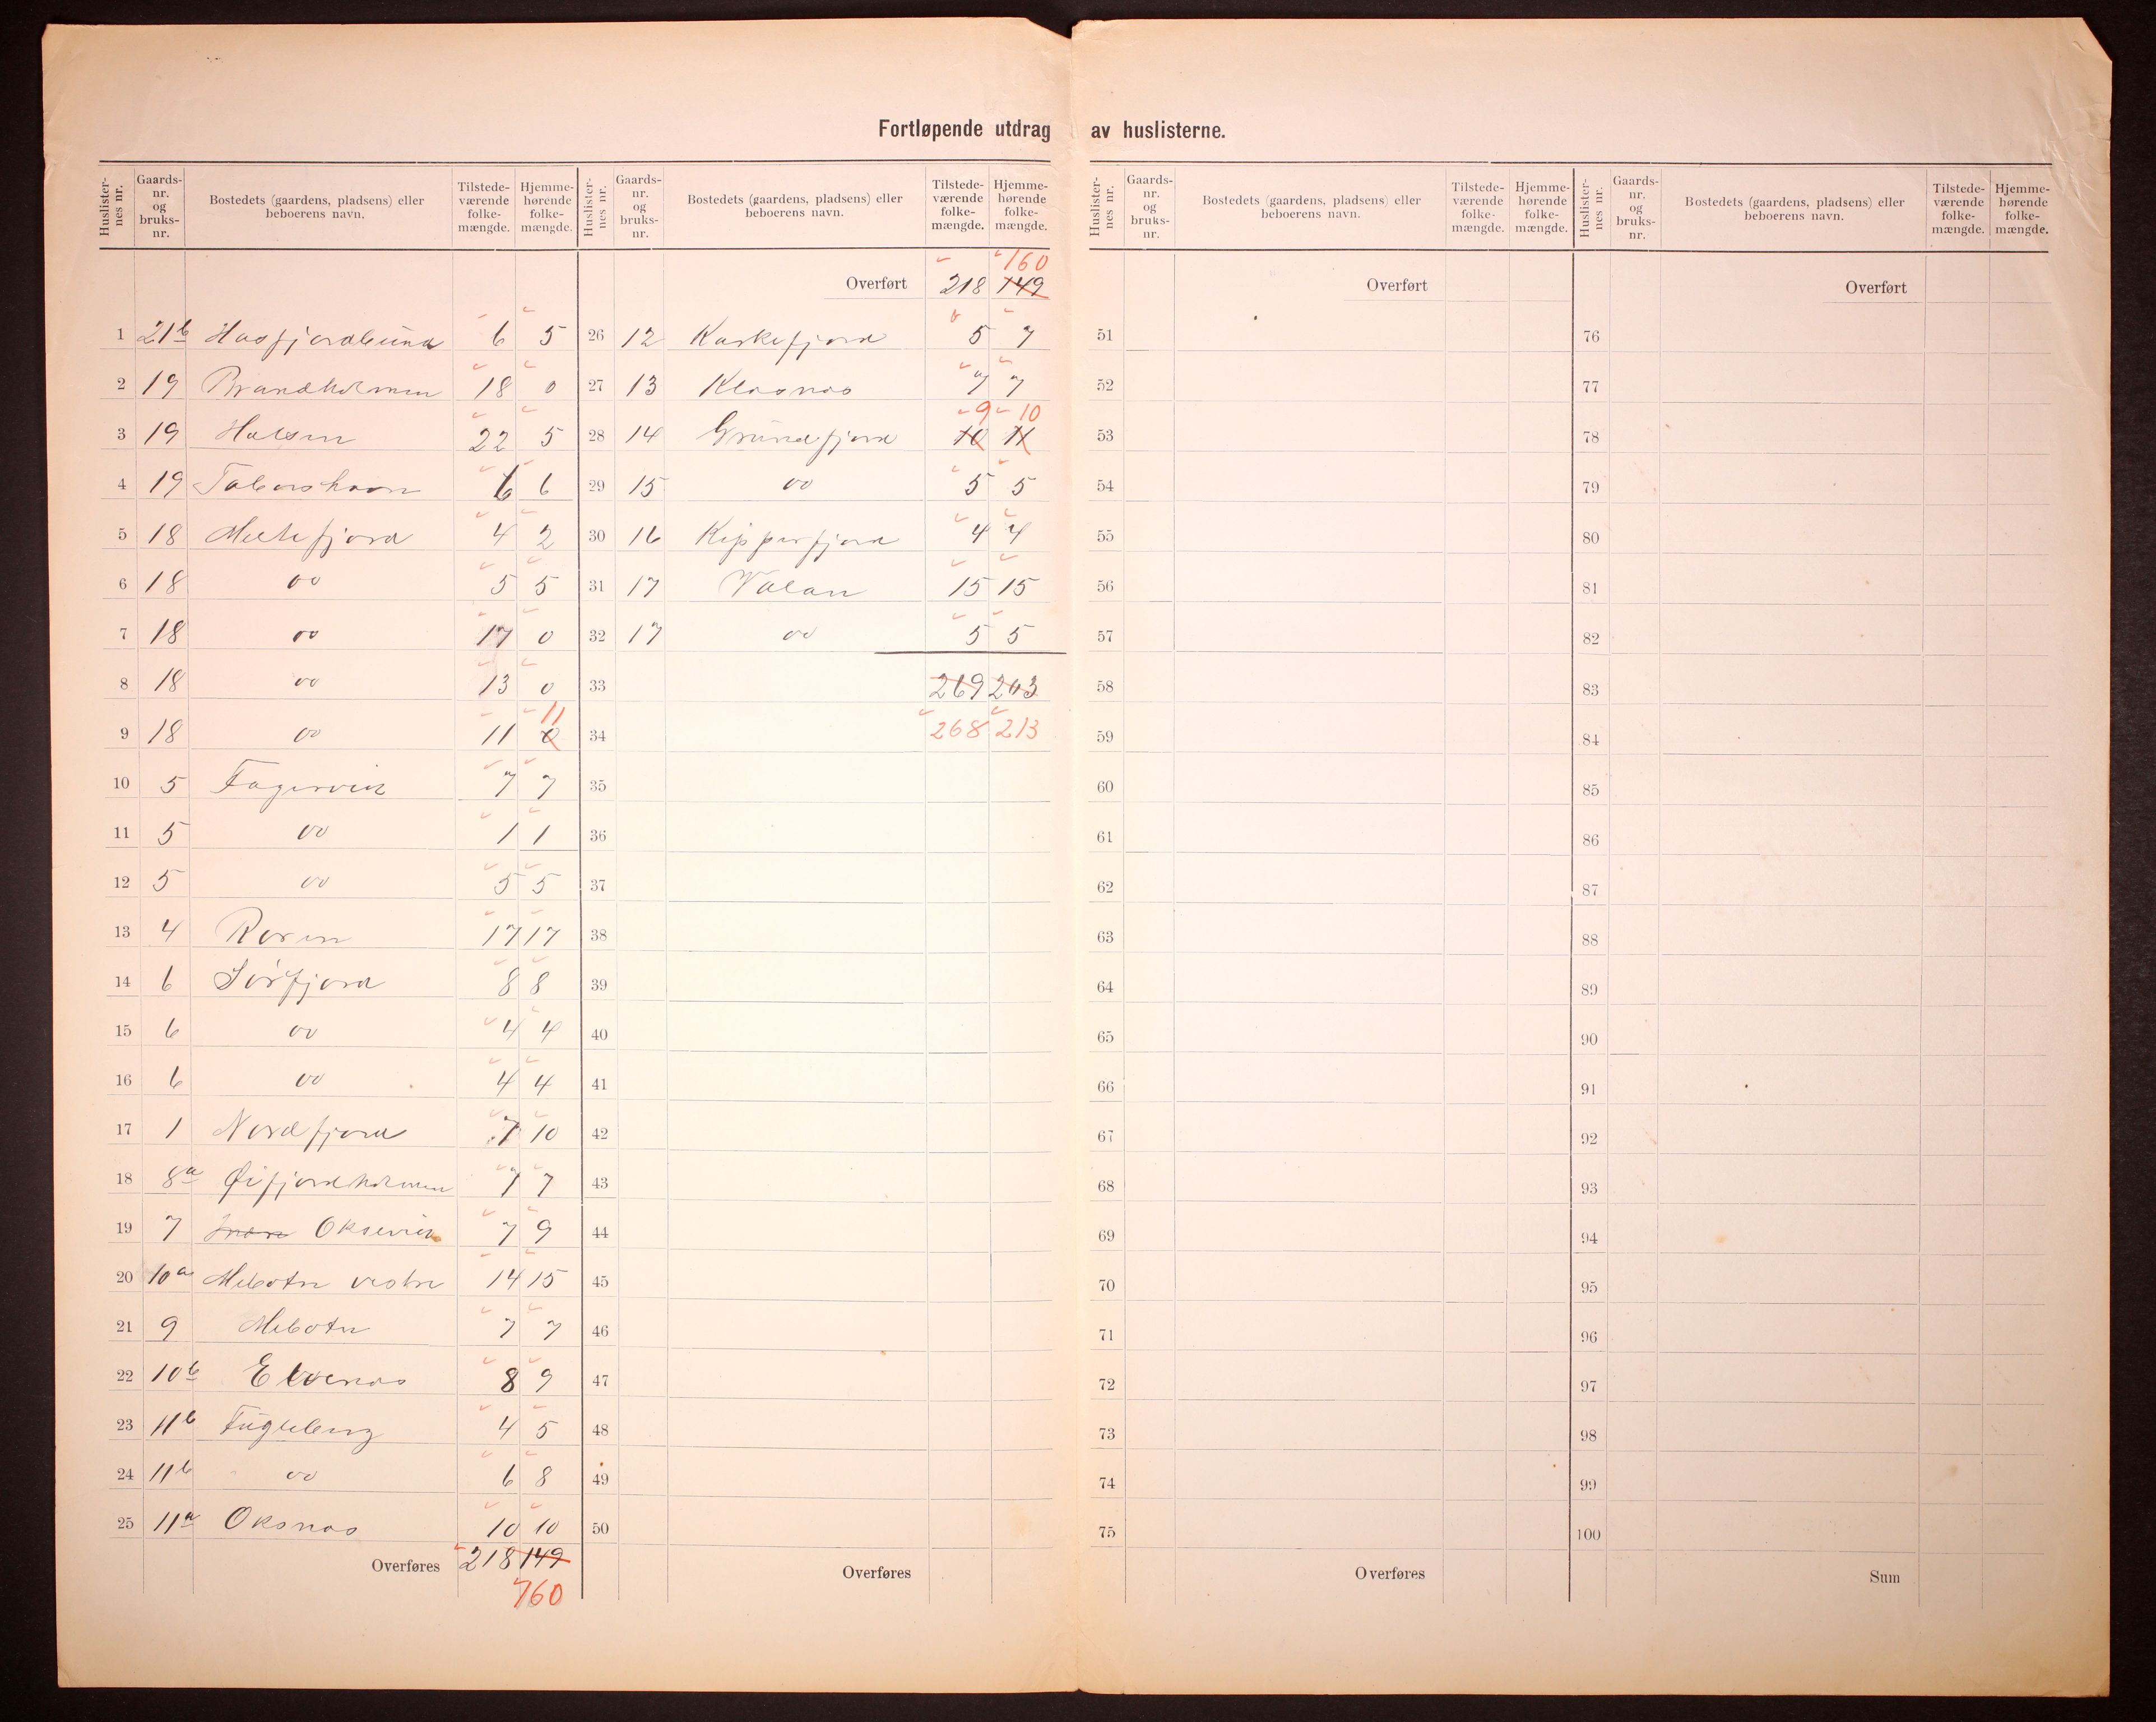 Fortløpende utdrag av huslisterne.
Huslister-nes nr. Gaards-nr. og bruks-nr. Bostedets (gaardens, pladsens) eller beboerens navn. Tilstede-værende folke-mængde. Hjemme-hørende folke-mængde.
1 21b Hasfjordbund 6 5
2 19 Brandholmen 18 0
3 19 Halsen 22 5
4 19 6 6
5 18 Meltefjord 4 2
6 18 do 5 5
7 18 do 17 0
8 18 do 13 0
9 18 do 11 0 11
10 5 Fagervik 7 7
11 5 do 1 1
12 5 do 5 5
13 4 17 17
14 6 Sörfjord 8 8
15 6 do 4 4
16 6 do 4 4
17 1 Nordfjord 7 10
18 8a Øifjordholmen 7 7
19 7 Oksevik 7 9
20 10a Mebotn vestre 14 15
21 9 Mebotn 7 7
22 10b Elvenas 8 9
23 11b Fugleberg 4 5
24 11b do 6 8
25 11a Oksnas 10 10
Overføres 218 149
160
Huslister-nes nr. Gaards-nr. og bruks-nr. Bostedets (gaardens, pladsens) eller beboerens navn. Tilstede-værende folke-mængde. Hjemme-hørende folke-mængde.
160
Overført 218 149
26 12 Kaskefjord 5 7
27 13 Klasnas 7 7
9 10
28 14 Grundfjord 10 11
29 15 do 5 5
30 16 Kipperfjord 4 4
31 17 Valan 15 15
32 17 do 5 5
33 269 203
34 268 213
35
36
37
38
39
40
41
42
43
44
45
46
47
48
49
50
Overføres
Huslister-nes nr. Gaards-nr. og bruks-nr. Bostedets (gaardens, pladsens) eller beboerens navn. Tilstede-værende folke-mængde. Hjemme-hørende folke-mængde.
Overført
51
52
53
54
55
56
57
58
59
60
61
62
63
64
65
66
67
68
69
70
71
72
73
74
75
Overføres
Huslister-nes nr. Gaards-nr. og bruks-nr. Bostedets (gaardens, pladsens) eller beboerens navn. Tilstede-værende folke-mængde. Hjemme-hørende folke-mængde.
Overført
76
77
78
79
80
81
82
83
84
85
86
87
88
89
90
91
92
93
94
95
96
97
98
99
100
Sum